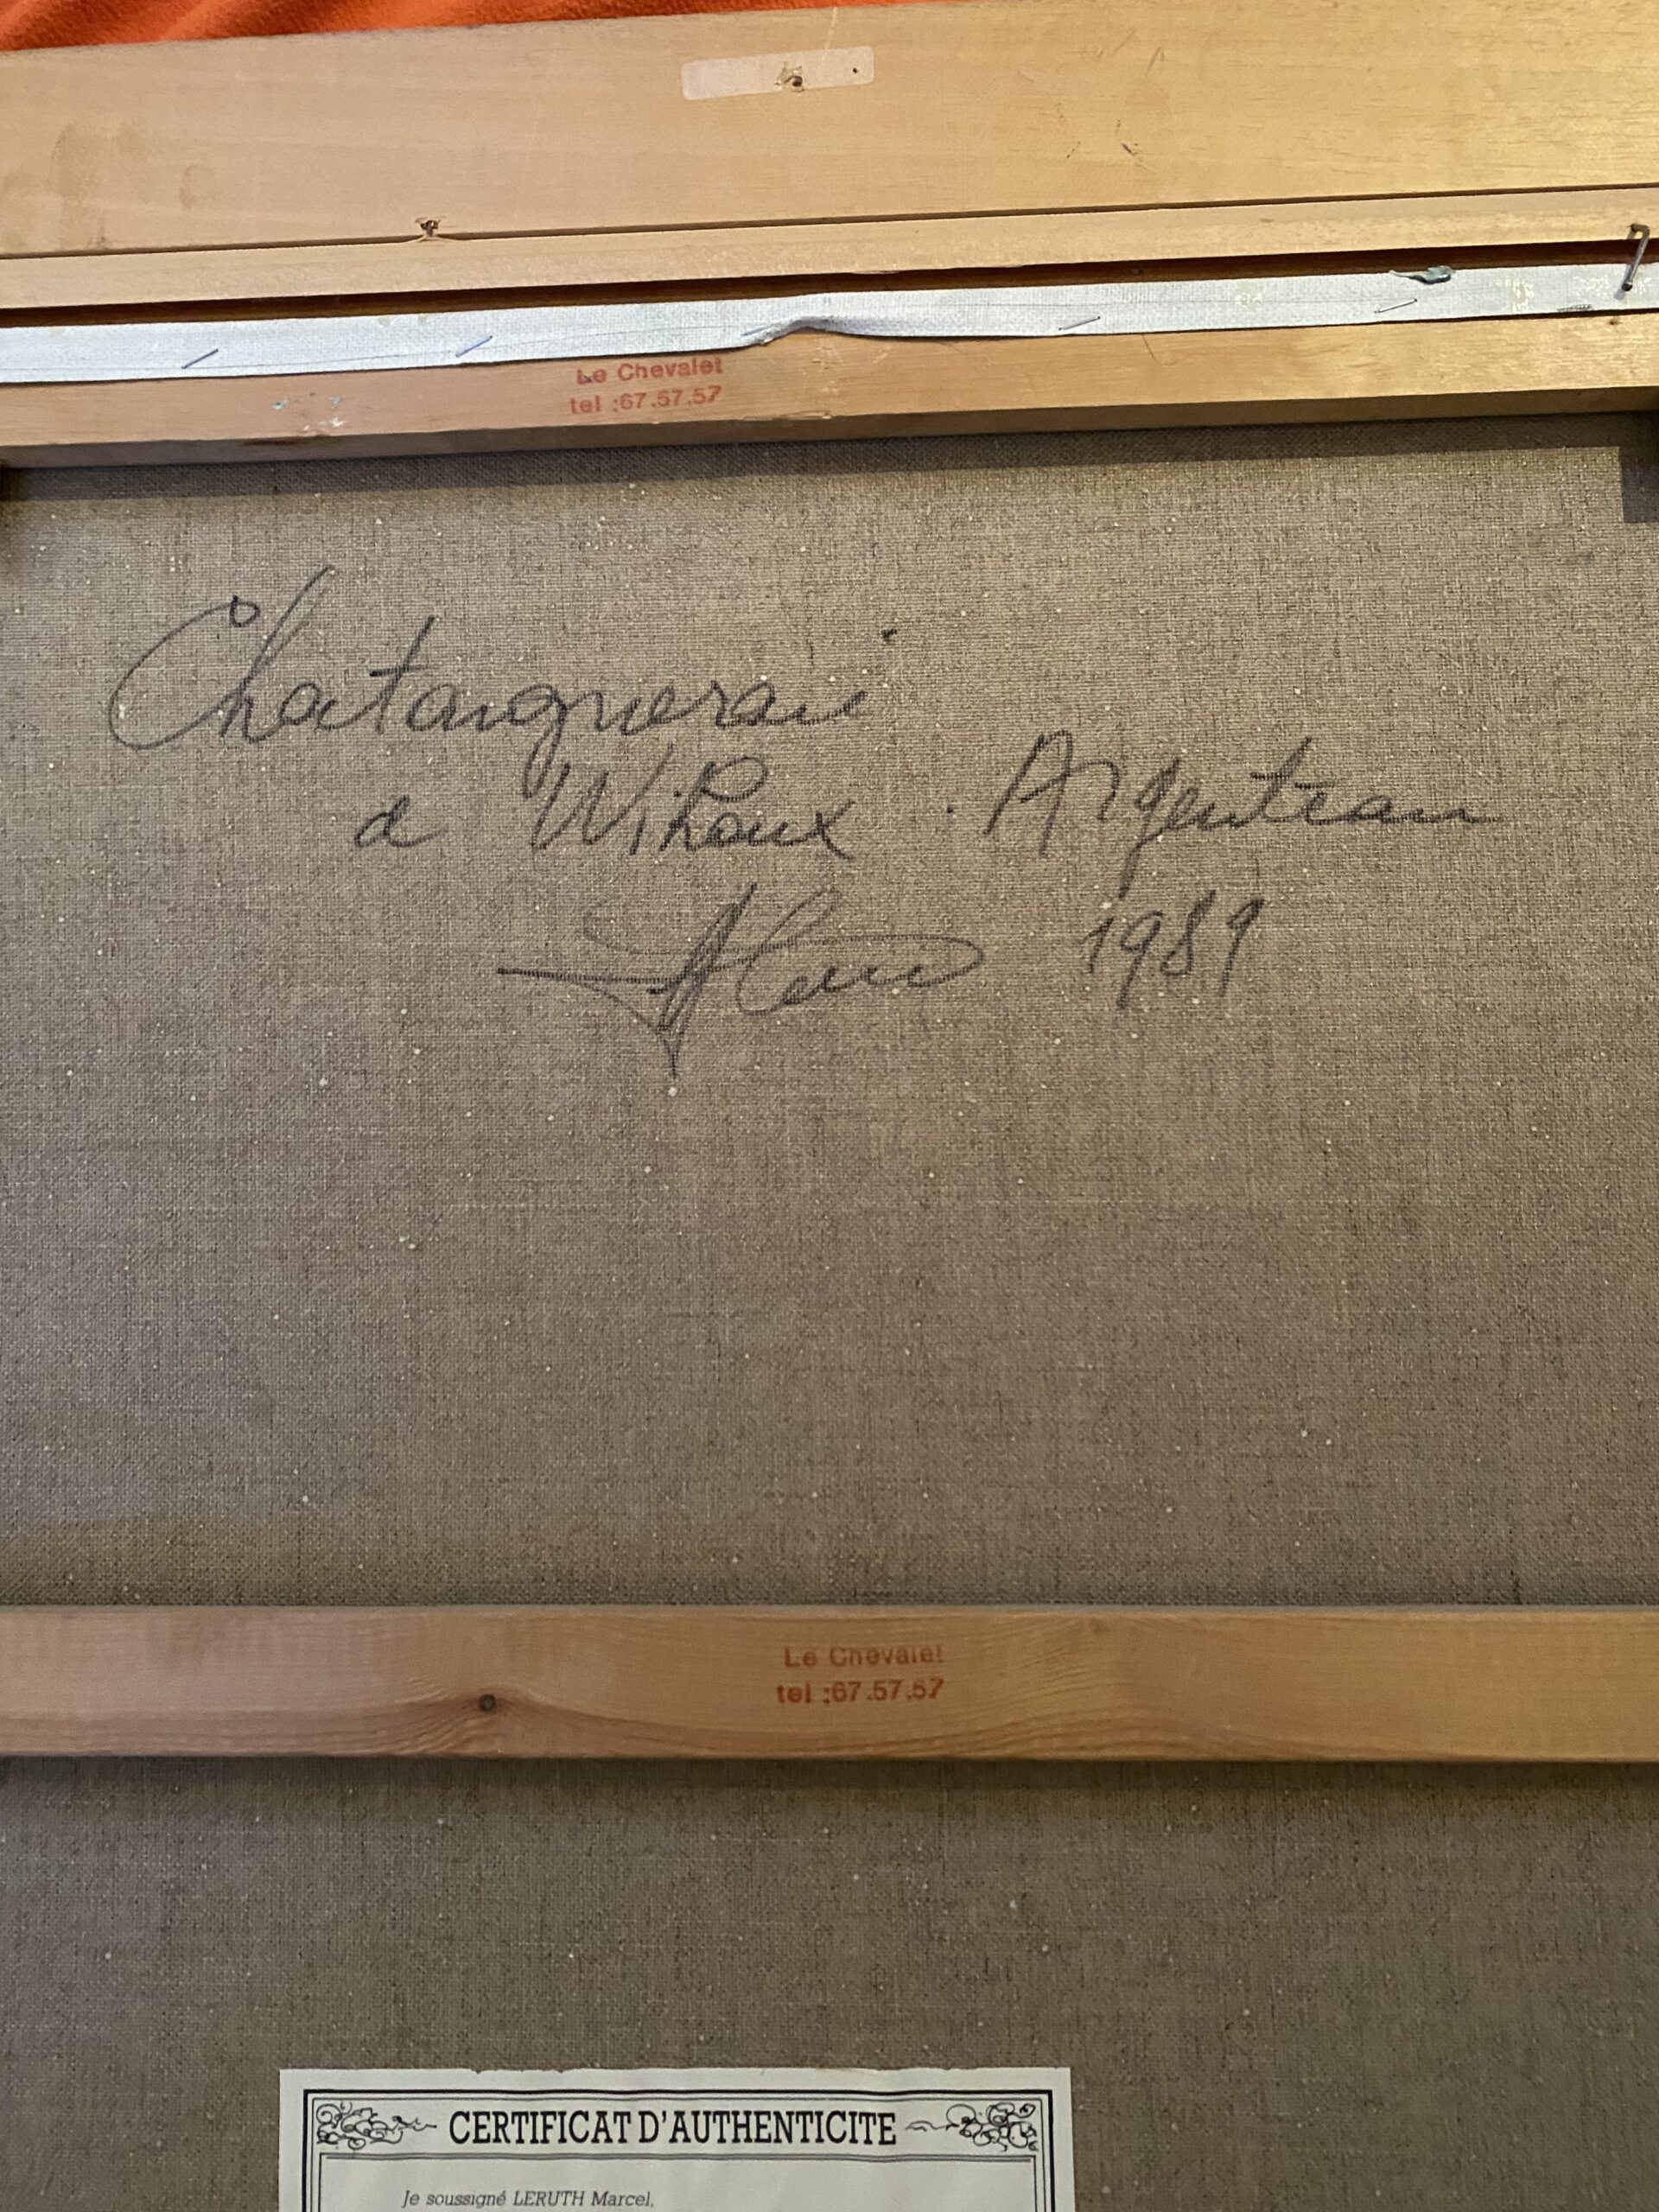 Le Chevalet
tel :67.57.57
Chataigneraie
a Wihoux . Argenteau
1989
Le Chevalet
tel :67.57.57
CERTIFICAT D'AUTHENTICITE
Je soussigné LERUTH Marcel,